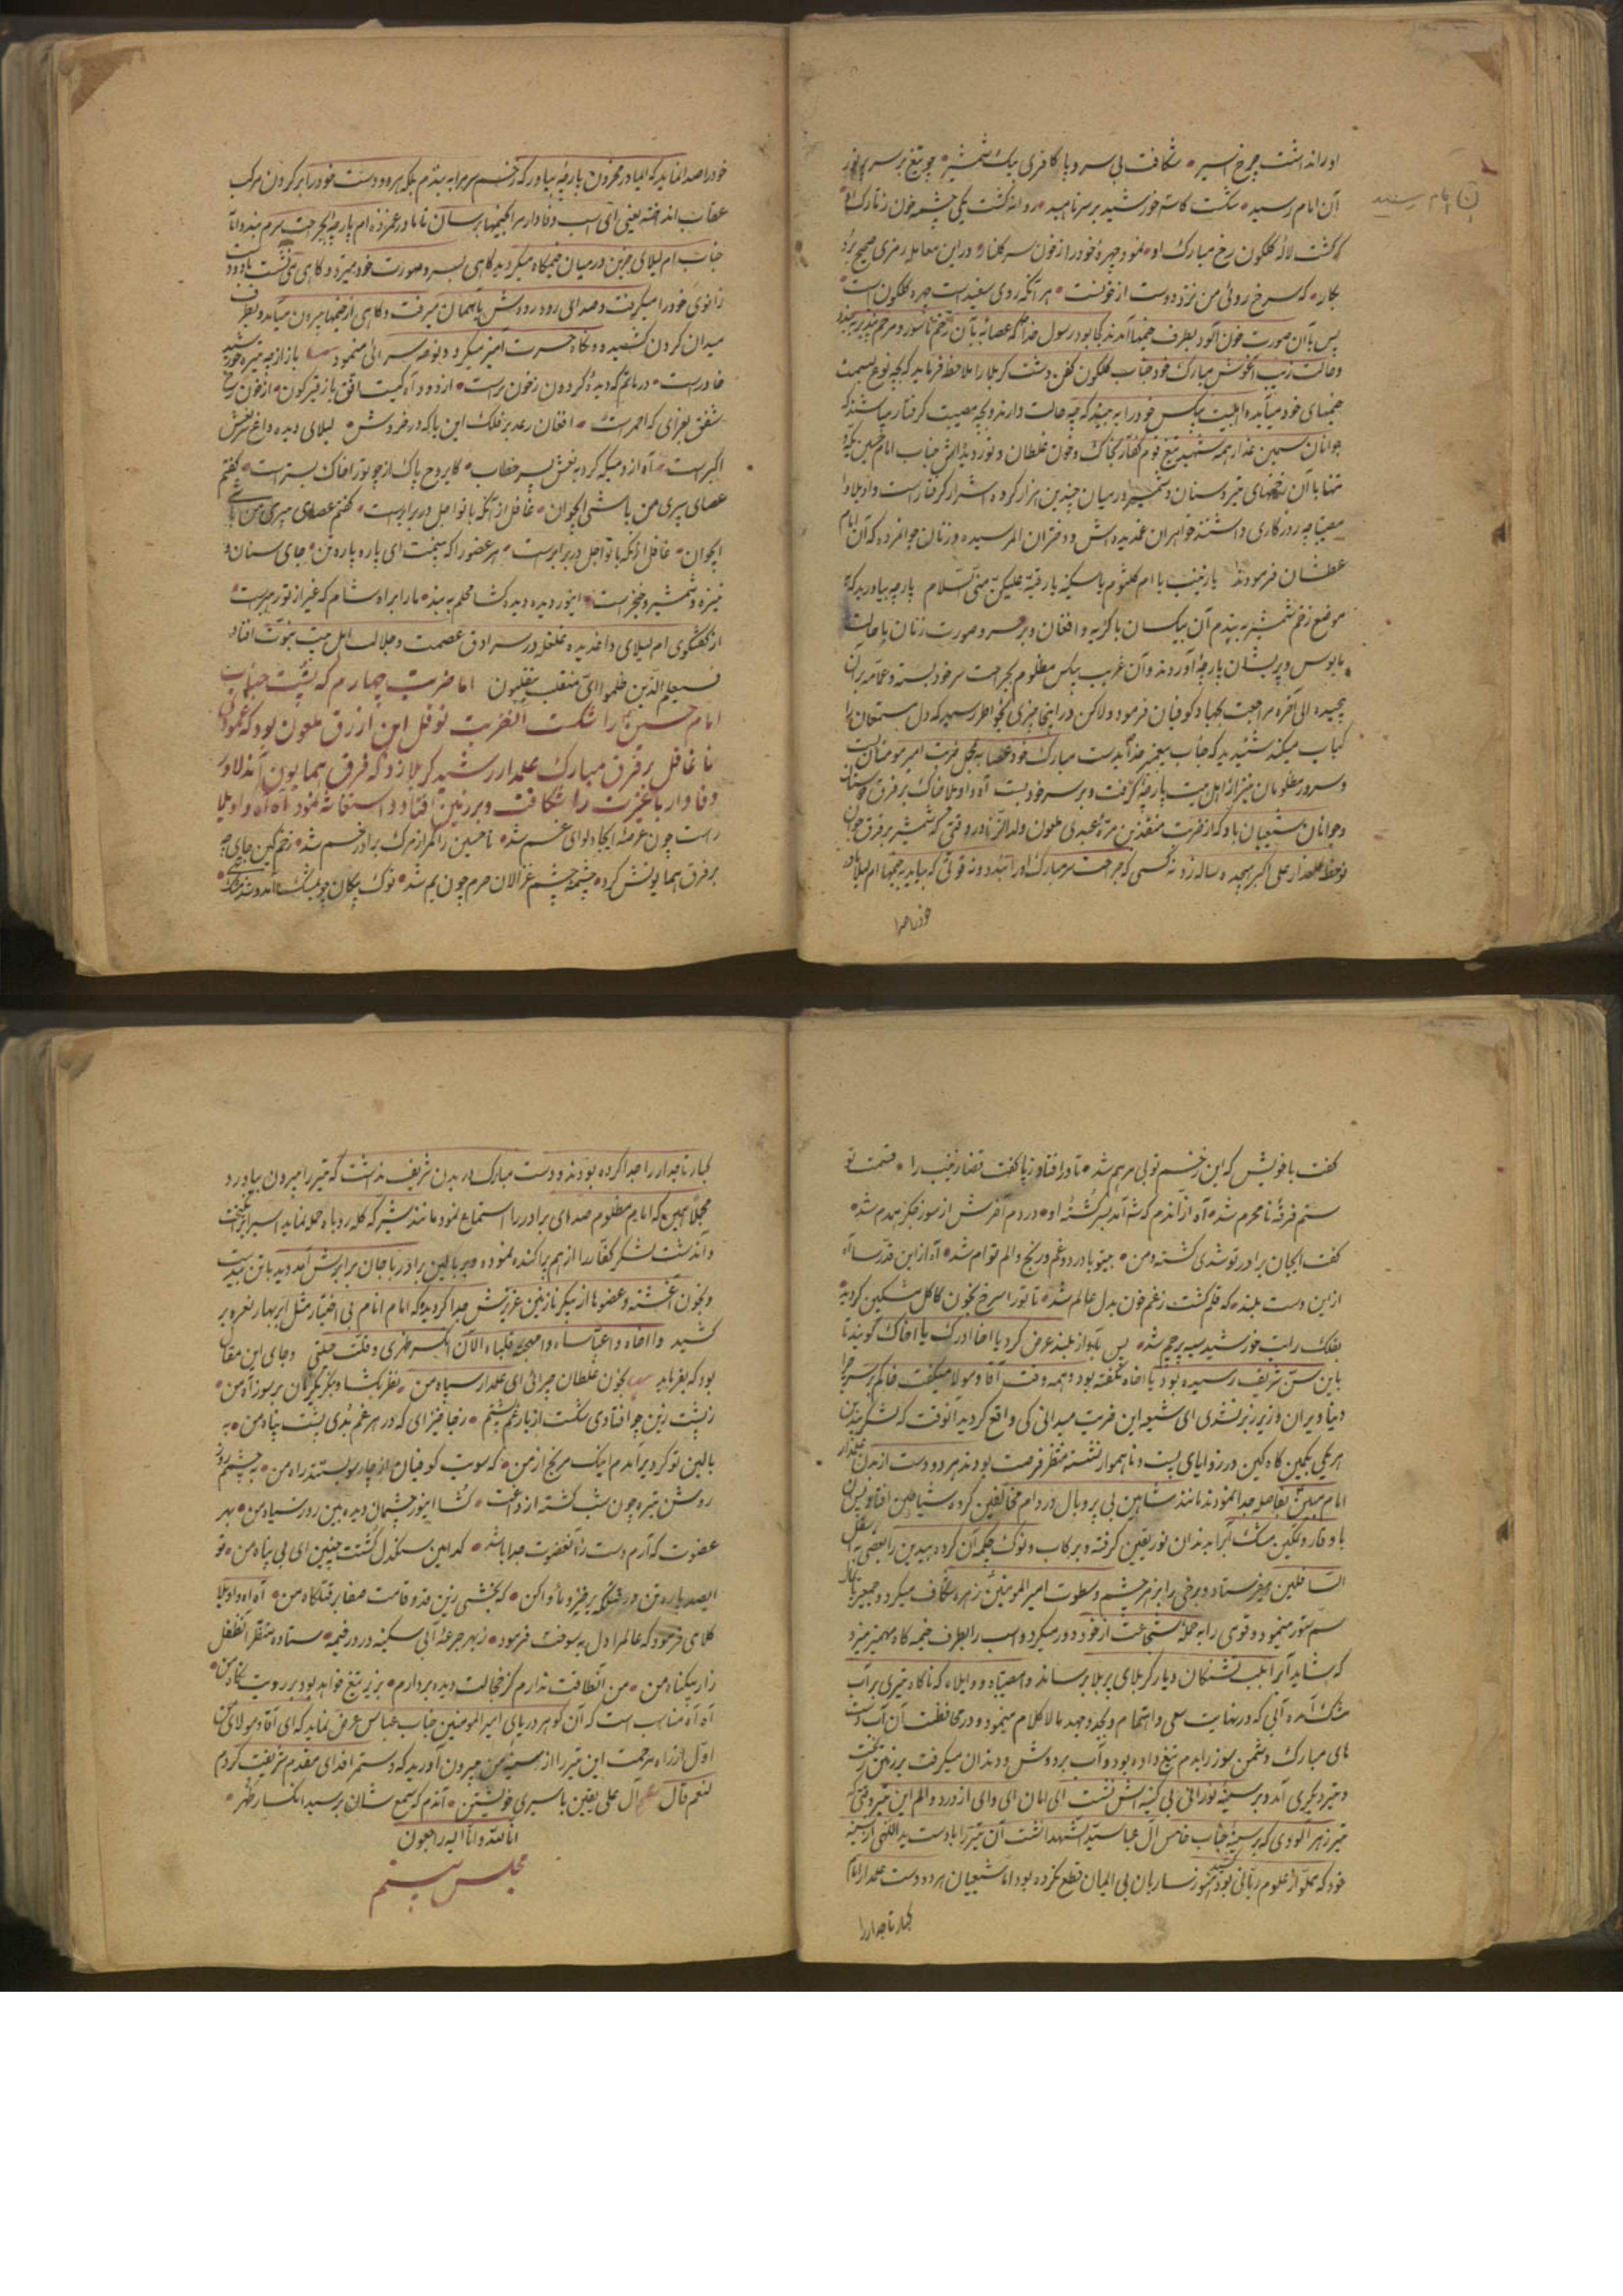 او را نداشت چرخ اسیر شکافت بی سر و پا کافری بیک شمشیر چو تیغ بر سر
آن امام رسید شکست کاسه خورشید بر سر ناهید روانه گشت یکی چشمه خون ز تارک او
که گشت لاله گلگون رخ مبارک او نمود چهره خود را ز خون سر گلنار در این معامله رمزی صحیح برد
بکار که سرخ روئی من نزد دوست از خونست هر آنکه روی سفید است چهره گلگون است
پس با آن صورت خون آلود بطرف خیمها آمدند کجا بود رسول خدا که عصابه بآن زخم ناسور و مرحم پذیر بر بندد
و حالت زینب آغوش مبارک خود جناب گلگون کفن دشت کربلا را ملاحظه فرماید که بچه نوع بسمت
خیمهای خود میآید و اهلبیت بیکس خود را به بیند که چه حالت دارند و بچه مصیبت گرفتار میباشند که
جوانان سیمین عذار همه شهید تیغ قوم کفار بخاک و خون غلطان و نور دیده اش جناب امام حسین یکه و
تنها با آن زخمهای تیر و سنان و شمشیر در میان چندین هزار گروه اشرار گرفتار است واویلا وا
مصیبتا چه روزکاری داشتند خواهران غمدیده اش و دختران الم رسیده و زنان جوانمرده که آن امام
عطشان فرمودند یا زینب یا ام کلثوم یا سکینه یا رقیه علیکن منی السلام پارچه بیاورید که
موضع زخم شمشیر به بندم آن بیکسان با گریه و افغان و بر سر و صورت زنان با حالت
مأیوس و پریشان پارچه آوردند و آن غریب بیکس مظلوم بجراحت سر خود بسته و عمامه بر آن
پیچیده الی آخره مراجعت بجهاد کوفیان فرمود و لاکن در اینجا چیزی بخواطر رسید که دل مستمعان را
کباب میکند شنیدید که جناب پیغمبر خدا بدست مبارک خود عصابه بمحل ضربت امیر مومنان بست
و سرور مظلومان نیز از اهل بیت پارچه گرفت و بر سر خود بست آه واویلا خاک بر فرق
و جوانان شیعیان باد که از ضربت منقذ بن مره عبدی ملعون ولد الزنا در وقتی که شمشیر بر فرق جوان
نوخط گلعذار علی اکبر هیجده ساله زد نه کسی که جراحت سر مبارک او را به بندد و نه قوتی که بیاید بخیمها ام لیلا مادر
خود را صدا
خود را صدا نماید که ای مادر محزون پارچه بیاور که زخم سر مرا به بندم بلکه هر دو دست خود را بر گردن مرکب
عقاب انداخته یعنی ای اسب وفادار مرا بخیمها برسان تا مادر غمزده ام پارچه بجراحت سرم بندد اما
جناب ام لیلای حزین در میان خیمگاه میگردید گاهی بسر و صورت خود میزد و گاهی می نشست با دو دست
زانوی خود را میگرفت و صدای رود رودش بآسمان میرفت و گاهی از خیمها بیرون میآمد و بطرف
میدان گردن کشیده و نگاه حسرت آمیز میکرد و نوحه سرائی مینمود باز از چه تیره خورشید
خاور است در ماتم که دیده گردون ز خون تر است از دود آه کیست افق باز قیر گون از خون
شفق بعزای که احمر است افغان رعد بر فلک این بار که در خروش لیلای دیده داغ بنعش
اکبر است آه از دمی که کرد به نعش پسر خطاب کای روح پاک از چو تو را خاک بستر است گفتم
عصای پیری من باشی ای جوان غافل از آنکه با تو اجل در برابر است گفتم عصای پیری من باشی
ای جوان غافل از آنکه با تو اجل در برابر است هر عضو را که بینمت ای پاره پاره تن جای سنان و
نیزه و شمشیر و خنجر است ای نور دیده دیده گشا محملم به بند ما را براه شام که غیر از تو رهبر است
از گفتگوی ام لیلای داغدیده غلغل در سرادق عصمت و جلالت اهل بیت نبوت افتاد
فسیعلم الذین ظلموا ای منقلب ینقلبون اما ضربت چهارم که پشت جناب
امام حسین را شکست آنضربت نوفل ابن ازرق ملعون بود که عمود
نا غافل بر فرق مبارک علمدار رشید کربلا زد که فرق همایون آن دلاور
وفادار با عزت را شکافت و بر زمین افتاد و استغاثه نمود آه آه واویلا
راست چون عرصه ایجاد لوای غم شد تا حسین را کمر از مرگ برادر خم شد زخم کین جای
بر فرق همایونش کرد چشمه چشم غزالان حرم چون یم شد نوک پیکان چو بمشک آمد و شد
گفت با خویش که این زخم تو بی مرهم شد تا در افتاد ز پا گفت قضا زینب را قسمت تو
ستم فرقه نامحرم شد آه از آندم که شه آمد بسر کشته او در دم آخرش از سوز جگر همدم شد
گفت ایجان برادر تو شدی کشته و من بیتو با درد و غم و رنج و الم توام شد آه از این قدر رسا آه
از این دست بلند که قلم گشت ز غم خون بدل عالم شد تا تو را سرخ بخون کاکل مشکین گردید
بفلک رایت خورشید سیه پرچم شد پس بآواز بلند عرض کرد یا اخا ادرک یا اخاک گویند تا
باین سن شریف رسیده بود یا اخاه نگفته بود و همه وقت آقا و مولا میگفت فاکم بر سر چرا
دنیا ویران و زیر زبر نشدی ای شیعه این ضربت میدانی کی واقع گردید آنوقت که لشکر بیدین
هر یکی بکمین گاه کمین در زوایای پست و ناهموار نشسته منتظر فرصت بودند هر دو دست از بدن علمدار
امام مبین بفاصله جدا نمودند مانند شاهین بی پر و بال در دام مخالفین گروه شیاطین افتاد
با وقار و تمکین مشک آبرا بدندان نور یقین گرفته و بر کاب و نوک چکمه آن گروه بیدین را بعضی به اسفل
السافلین میفرستاد و برخی را بزهر چشم و سطوت امیر المومنین زهره شکاف میکرد و جمعی را بآواز
سم ستور مینمود و قوی را به حمله شجاعت از خود دور میکرد و اسب را بطرف خیمه گاه مهمیز میزد
که شاید آبرا بلب تشنگان دیار کربلای پر بلا برساند وا مصیبتاه و واویلاه که ناگاه تیری بر آب
مشک آمده آبی که در نهایت سعی و اهتمام و بجد و جهد مالا کلام مینمود و در محافظت آن آب دست
های مبارک دشمن سوز را بدم تیغ داده بود و آب بر دوش و دندان میگرفت بر زمین ریخت
و تیر دیگری آمد و بر سینه نورانی بی کینه اش نشست الی امان ای وای از درد و الم این تیر وقتی که
تیر زهر آلودی که بر سینه جناب خامس آل عبا سید الشهدا نشست آن تیر را با دست ید اللهی از سینه
خود که مملو از علوم ربانی بود کشید هنوز ساربان بی ایمان قطع نکرده بود اما شیعیان هر دو دست علمدار امام
کبار تاجدار را
کبار تاجدار را جدا کرده بودند و دست مبارک در بدن شریف نداشت که تیر را بیرون بیاورد
مجملا همین که امام مظلوم صدای برادر را استماع نمود مانند شیر که گله روباه حمله نماید اسب را برانگیخت
و آندشت لشکر کفار را از هم پراکنده نموده و بر بالین برادر با جان برابرش آمد دید با تن بیدست
و بخون آغشته و عضوها از پیکر نازنین عزیزش جدا گردیده که امام انام بی اختیار مثل ابر بهار نعره بر
کشید وا اخاه وا عباساه وا مهجة قلباه الآن انکسر ظهری و قلت حیلتی و جای این مقال
بود که بفرماید بخون غلطان چرائی ای علمدار سپاه من نظر بگشا و بنگر یکزمان بر سوز آه من
ز پشت زین چو افتادی شکست از بار غم پشتم ز جا خیز ای که در هر غم بدی پشت پناه من به
بالین تو گر دیر آمدم اینک مرنج از من که سویت کوفیان از چار سو بستند راه من به چشمم روز
روشن تیره چون شب گشته از داغت گشا ای نور چشمان دیده بین روز سیاه من بهر
عضوت که آرم دست زآن عضوت جدا باشد کدامین سنگدل گشتت چنین ای بی پناه من تو
ای صد پاره تن در قتلگه برخیز و مأوا کن که بخشی زین قد و قامت صفا بر قتلگاه من آه آه واویلا
کلامی فرمود که عالم را دل به سوخت فرمود ز بهر جرعه آبی سکینه در در خیمه ستاده منتظر آنطفل
زار بیگناه من من آنطاقت ندارم کز خجالت دیده بردارم بزیر تیغ خواهد بود بر رویت نگاه من
آه آه مناسب است که آن گوهر دریای امیر المومنین جناب عباس عرض نماید که ای آقا و مولای من
اول از راه مرحمت این تیر را از سینه من بیرون آورید که دستم را فدای مقدم شریفت کردم
لنعم قال آل علی یقین باسیری خویشتن آندم که سمع شان برسید انکسار ظهر
انا لله و انا الیه راجعون
مجلس بیستم